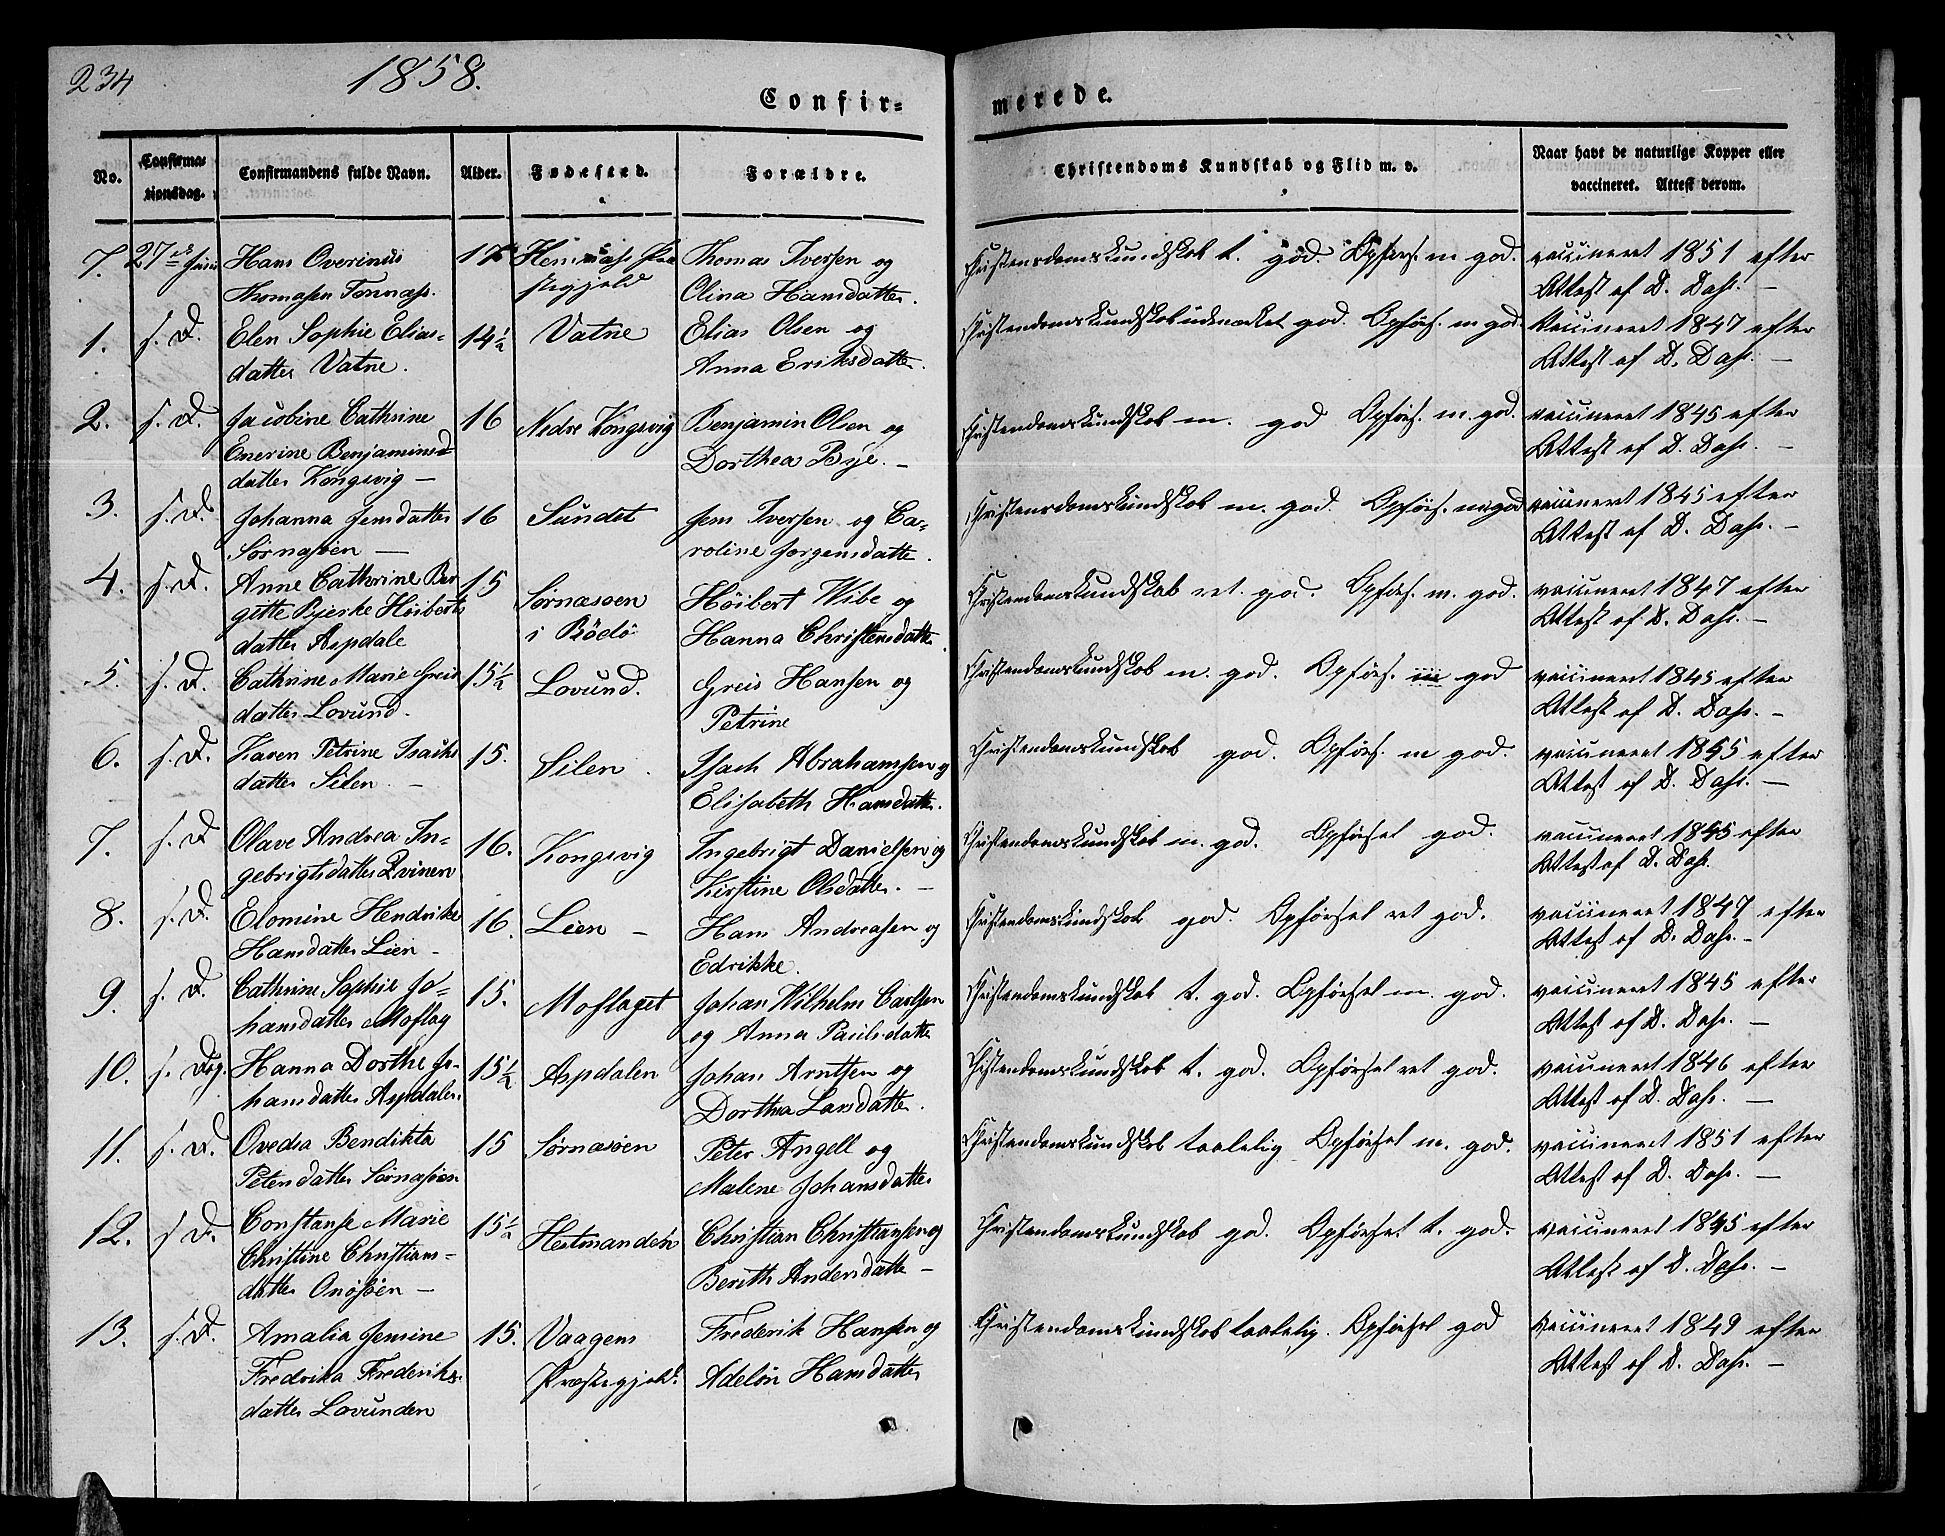 234
1858.
Confir-
merede.
No.
Confirma-
tionsdag.
Confirmandens fulde Navn.
Alder.
Fødested.
Forældre.
Christendoms Kundskab og Flid m. v.
Naar havt de naturlige Kopper eller
vaccineret. Attest derom.
7. 27de Juni Hans Overinus 17 Thomas Iversen og Christendomskundskab t. god Opførs. m god. vaccineret 1851 efter
Thomasen Tonnæs. Olina Hansdatter. Attest af D. Dahl. —
1. s. D. Elen Sophie Elias- 14½ Vatne Elias Olsen og Christendomskundskab udmærket god. Opførs. m god. Vaccineret 1847 efter
datter Vatne. Anna Eriksdatter. Attest af D. Dahl. —
2. s. D. Jacobine Cathrine 16 Nedre Kongsvig Benjamin Olsen og Christendomskundskab m. god Opførs. m. god. vaccineret 1845 efter
Emerine Benjaminsd Dorthea Bye. — Attest af D. Dahl. —
datter Kongsvig —
3. s. D. Johanna Jensdatter 16 Sundet Jens Iversen og Ca- Christendomskundskab m. god. Opførs. m god vaccineret 1845 efter
Sørnæsøen — roline Jorgensdatter. Attest af D. Dahl. —
4. s. D. Anne Cathrine Bir 15 Sørnæsøen Høibert Wibe og Christendomskundskab ret. god. Opførs. m. god. vaccineret 1847 efter
gitte Bjerke Høiberts i Bödö Hanna Christensdatter. Attest af D. Dahl. —
datter Aspdale
5. s. D. Cathrine Marie Greis 15½ Lovund. Greis Hansen og Christendomskundskab m. god. Opførs. m god vaccineret 1845 efter
datter Lovund. Petrine Attest af D. Dahl. —
6. s. D. Karen Petrine Isachs 15. Silen. Isach Abrahamsen og Christendomskundskab god. Opførs. m god. vaccineret 1845 efter
datter Silen. — Elisabeth Hansdatter. Attest af D. Dahl. —
7. s. D Olave Andrea In- 16. Kongsvig Ingebrigt Danielsen og Christendomskundskab m. god. Opførsel god. vaccineret 1845 efter
gebrigtsdatter Qvinen Kirstine Olsdatter. — Attest af D. Dahl.
8. s. D. Elomine Hendrikke 16. Lien — Hans Andreasen og Christendomskundskab god. Opførsel ret god. vaccineret 1847 efter
Hansdatter Lien — Edrikke. Attest af D. Dahl. —
9. s. D. Cathrine Sophie Jo- 15. Moflaget Johan Wilhelm Carlsen Christendomskundskab t. god. Opførsel m. god. vaccineret 1845 efter
hansdatter Moflag og Anna Paulsdatter Attest af D. Dahl. —
10. s. Dag. Hanna Dorthe Jo- 15½ Aspdalen Johan Arntsen og Christendomskundskab t. god. Opførsel ret god. vaccineret 1846 efter
hansdatter Aspdalen. Dorthea Larsdatter. Attest af D. Dahl. —
11. s. D. Ovedia Bendikta 15 Sørnæsøen Peter Angell og Christendomskundskab taalelig Opførsel m. god. vaccineret 1851 efter
Petersdatter Sørnæsøen Malene Johansdatter Attest af D. Dahl. —
12. s D. Constanse Marie 15½ Hestmanden Christian Christiansen og Christendomskundskab god. Opførsel t. god. vaccineret 1845 efter
Christine Christians- Berith Andersdatter — Attest af D. Dahl. —
datter Onøsøen —
13. s. D. Amalia Jensine 15. Vaagens Frederik Hansen og Christendomskundskab taalelig. Opførsel god Vaccineret 1849 efter
Fredrika Frederiks- Præstegjeld. Adelon Hansdatter Attest af D. Dahl. —
datter Lovunden